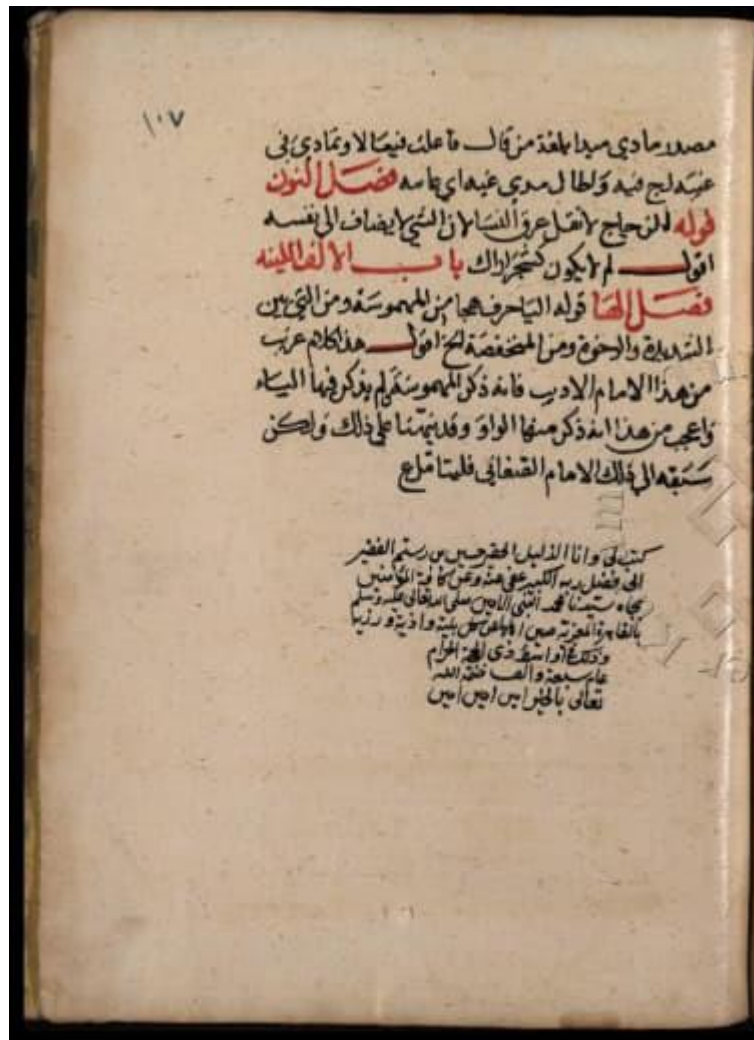 ١٠٧
مصدر مادي ميدا بلغة من قال فاعلت فيعالا وتمادي في
غيه لج فيه وطال مدي غيه اي غايته فصل النون
قوله الزجاج لا تقل عرق النسا لان الشي لا يضاف الى نفسه
اقول لم لا يكون كشجر اراك باب الالف اللينه
فصل الها قوله اليا حرف هجا من المهموسة ومن التي بين
الشديدة والرخوة ومن المنخفضة الخ اقول هذا كلام غريب
من هذا الامام الاديب فانه ذكر المهموسة ولم يذكر فيها الياء
واعجب من هذا انه ذكر منها الواو وقد نبهنا على ذلك ولكن
سبقه الى ذلك الامام الصغاني فليتامل
وانا الذليل الحقير حسين بن رستم الفقير
الى فضل ربه الكبير عفي عنه وعن كافة المؤمنين
بجاه سيدنا محمد النبي الامين صلى الله تعالى عليه وسلم
بالقاهرة المعزية بلية واذية ورزية
وذلك في اواسط ذي الحجة الحرام
عام سبعة والف ختمه الله
تعالى بالخير امين امين امين